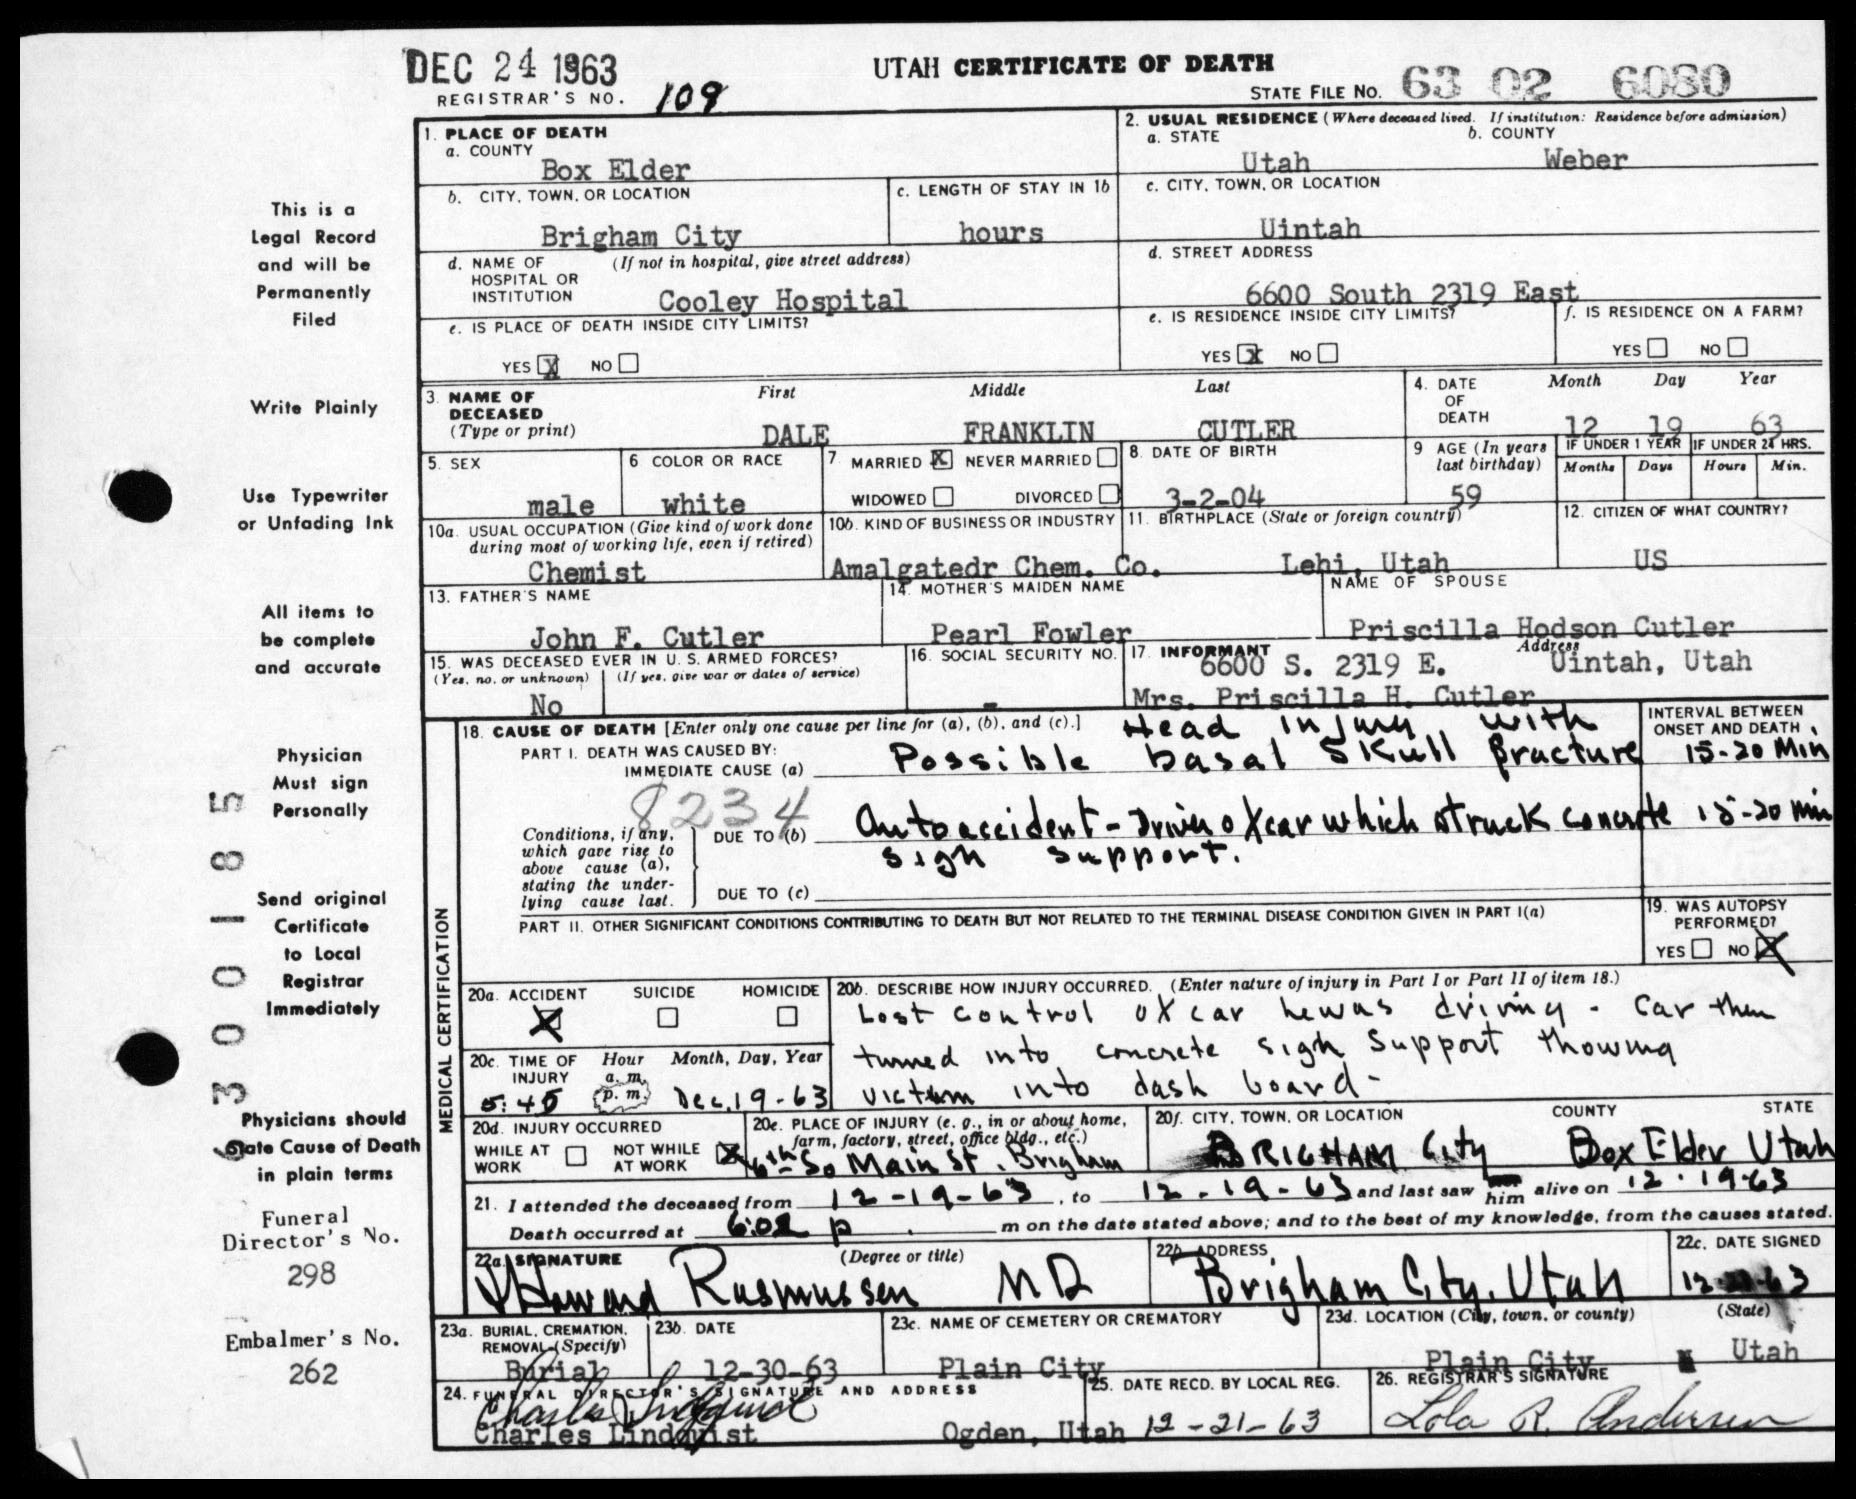 DEC 24 1963
UTAH CERTIFICATE OF DEATH
REGISTRAR'S NO. 109
STATE FILE NO. 63 02 6080
1. PLACE OF DEATH
a. COUNTY
Box Elder
2. USUAL RESIDENCE (Where deceased lived. If institution: Residence before admission)
a. STATE b. COUNTY
Utah Weber
b. CITY, TOWN, OR LOCATION
Brigham City
c. LENGTH OF STAY IN 1b
hours
c. CITY, TOWN, OR LOCATION
Uintah
d. NAME OF HOSPITAL OR INSTITUTION
(If not in hospital, give street address)
Cooley Hospital
d. STREET ADDRESS
6600 South 2319 East
e. IS PLACE OF DEATH INSIDE CITY LIMITS?
YES X NO
e. IS RESIDENCE INSIDE CITY LIMITS?
YES X NO
f. IS RESIDENCE ON A FARM?
YES NO
3. NAME OF DECEASED
(Type or print)
First Middle Last
DALE FRANKLIN CUTLER
4. DATE OF DEATH
Month Day Year
12 19 63
5. SEX
male
6 COLOR OR RACE
white
7 MARRIED X NEVER MARRIED
WIDOWED DIVORCED
8. DATE OF BIRTH
3-2-04
9 AGE (In years last birthday)
59
IF UNDER 1 YEAR IF UNDER 24 HRS.
Months Days Hours Min.
10a. USUAL OCCUPATION (Give kind of work done during most of working life, even if retired)
Chemist
10b. KIND OF BUSINESS OR INDUSTRY
Amalgatedr Chem. Co.
11. BIRTHPLACE (State or foreign country)
Lehi, Utah
12. CITIZEN OF WHAT COUNTRY?
US
13. FATHER'S NAME
John F. Cutler
14. MOTHER'S MAIDEN NAME
Pearl Fowler
NAME OF SPOUSE
Priscilla Hodson Cutler
15. WAS DECEASED EVER IN U. S. ARMED FORCES?
(Yes, no, or unknown) (If yes, give war or dates of service)
No
16. SOCIAL SECURITY NO.
-
17. INFORMANT Address
6600 S. 2319 E. Uintah, Utah
Mrs. Priscilla H. Cutler
18. CAUSE OF DEATH [Enter only one cause per line for (a), (b), and (c).]
PART I. DEATH WAS CAUSED BY:
IMMEDIATE CAUSE (a)
Head injury with
Possible basal skull fracture
INTERVAL BETWEEN ONSET AND DEATH
15-20 Min
8234
Conditions, if any, which gave rise to above cause (a), stating the underlying cause last.
DUE TO (b) Auto accident - Driver of car which struck concrete 15-20 min
sign support.
DUE TO (c)
PART II. OTHER SIGNIFICANT CONDITIONS CONTRIBUTING TO DEATH BUT NOT RELATED TO THE TERMINAL DISEASE CONDITION GIVEN IN PART I(a)
19. WAS AUTOPSY PERFORMED?
YES NO X
MEDICAL CERTIFICATION
20a. ACCIDENT SUICIDE HOMICIDE
X
20b. DESCRIBE HOW INJURY OCCURRED. (Enter nature of injury in Part I or Part II of item 18.)
Lost control of car he was driving - Car then
turned into concrete sign support thowing
victim into dash board -
20c. TIME OF INJURY
Hour Month, Day, Year
a. m.
p. m.
5:45 Dec. 19-63
20d. INJURY OCCURRED
WHILE AT WORK NOT WHILE AT WORK X
20e. PLACE OF INJURY (e. g., in or about home, farm, factory, street, office bldg., etc.)
6th So Main St. Brigham
20f. CITY, TOWN, OR LOCATION COUNTY STATE
BRIGHAM City Box Elder Utah
21. I attended the deceased from 12-19-63, to 12-19-63 and last saw him alive on 12-19-63
Death occurred at 6:02 p m on the date stated above; and to the best of my knowledge, from the causes stated.
22a. SIGNATURE (Degree or title)
Howard Rasmussen MD
22b. ADDRESS
Brigham City, Utah
22c. DATE SIGNED
23a. BURIAL, CREMATION, REMOVAL (Specify)
Burial
23b. DATE
12-30-63
23c. NAME OF CEMETERY OR CREMATORY
Plain City
23d. LOCATION (City, town, or county) (State)
Plain City Utah
24. FUNERAL DIRECTOR'S SIGNATURE AND ADDRESS
Charles Lindquist
Charles Lindquist Ogden, Utah
25. DATE RECD. BY LOCAL REG.
12-21-63
26. REGISTRAR'S SIGNATURE
Lola R. Andersen
This is a
Legal Record
and will be
Permanently
Filed
Write Plainly
Use Typewriter
or Unfading Ink
All items to
be complete
and accurate
Physician
Must sign
Personally
Send original
Certificate
to Local
Registrar
Immediately
Physicians should
State Cause of Death
in plain terms
Funeral
Director's No.
298
Embalmer's No.
262
300185